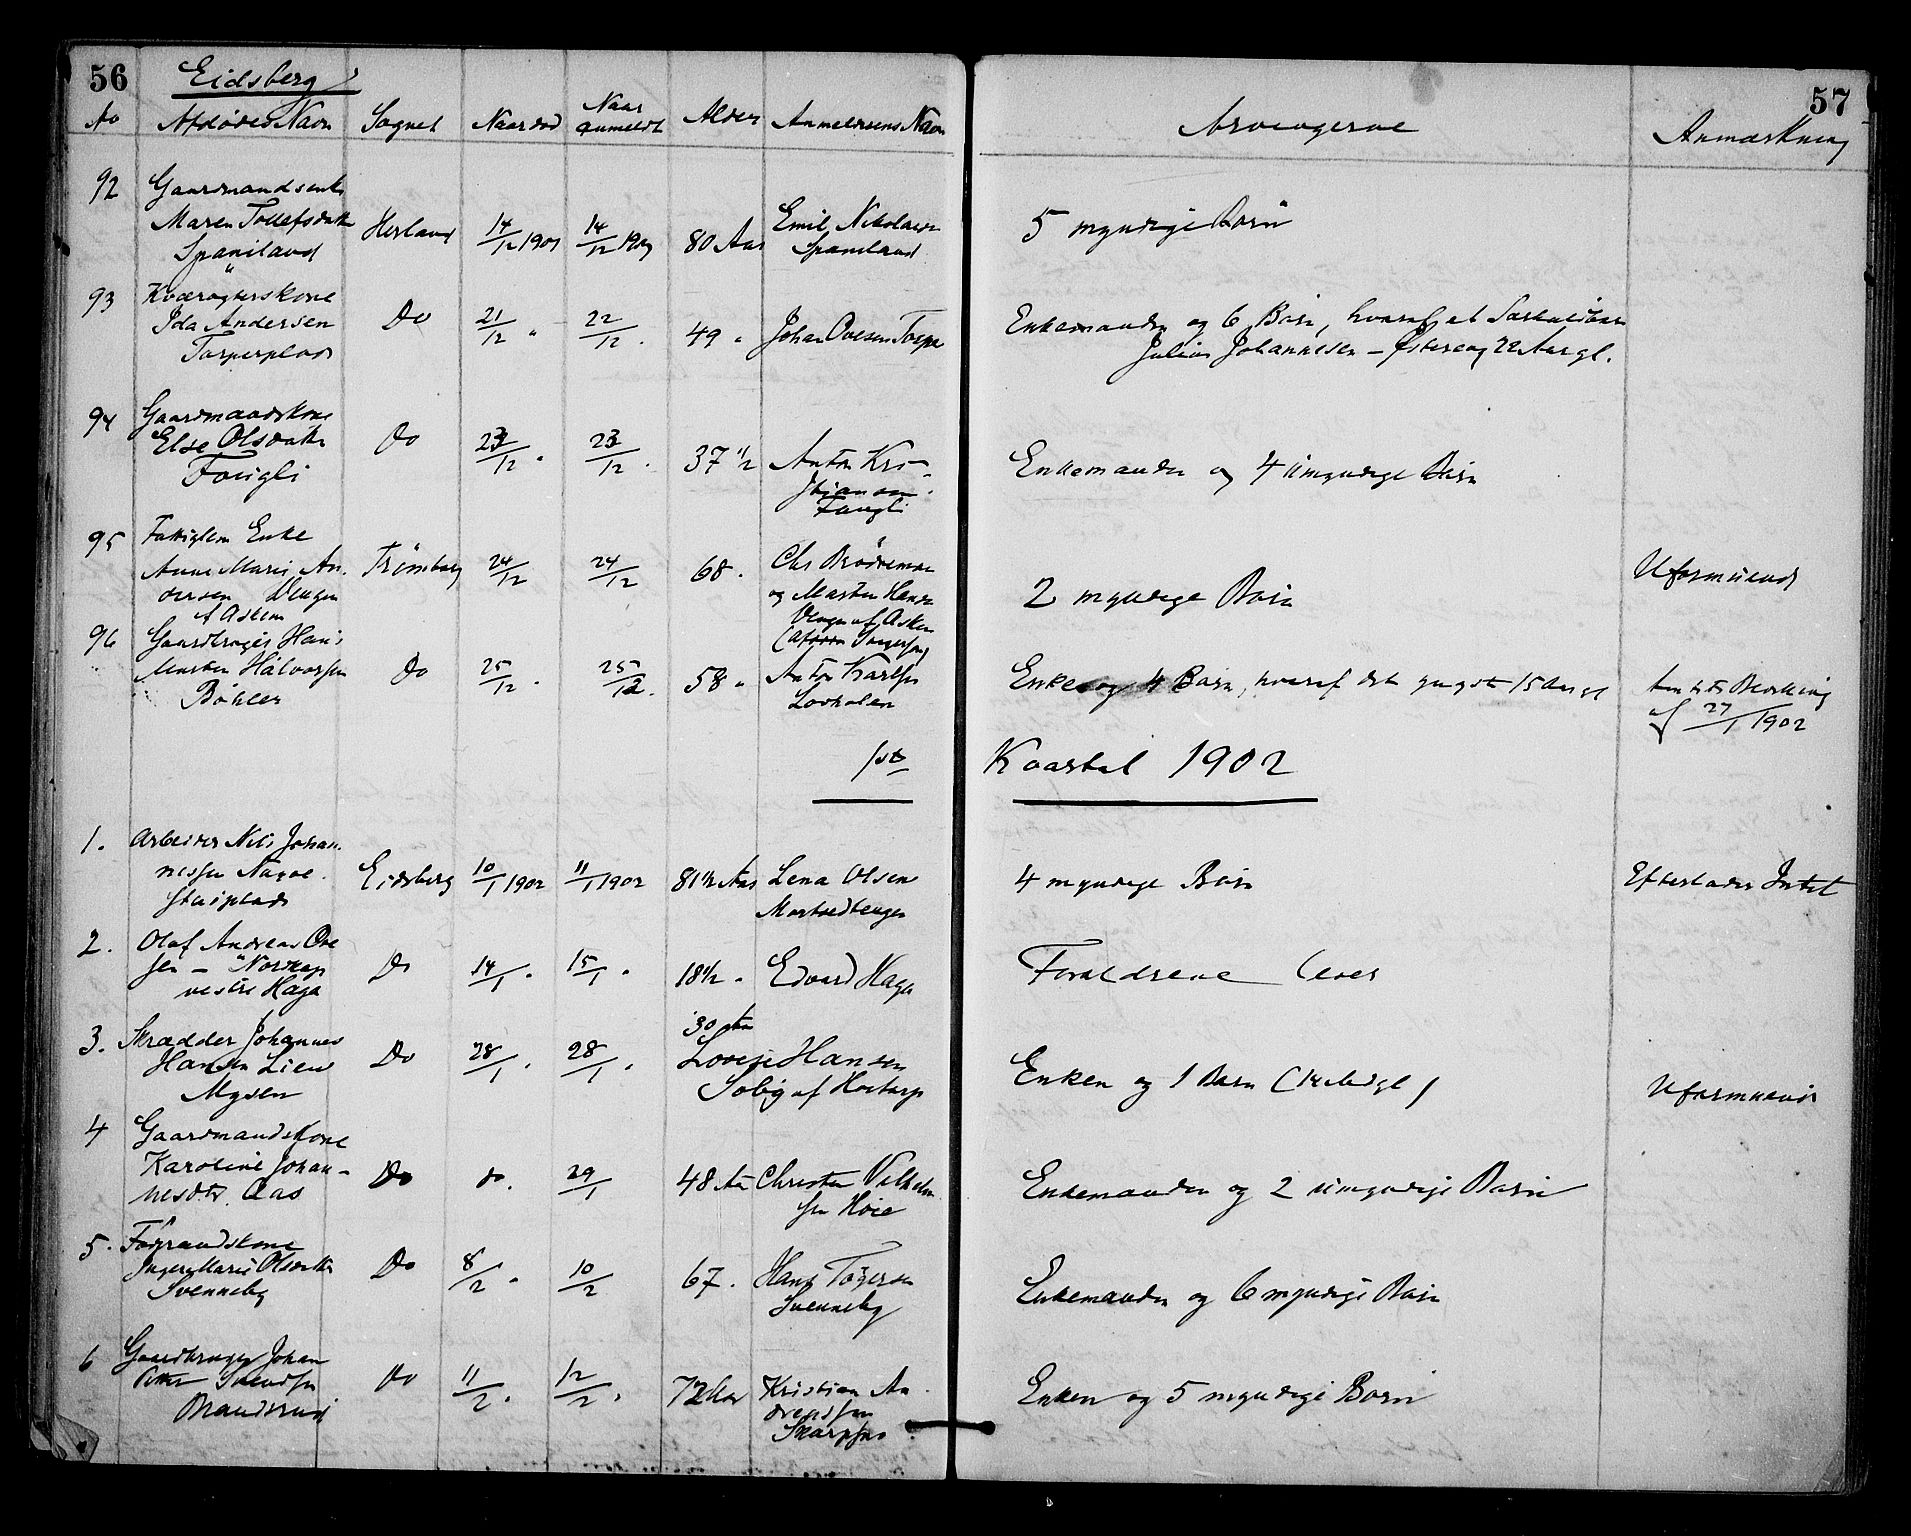 56 Eidsberg
No Afdødes Navn Sognet Naar død Naar anmeldt Alder Anmelderens Navn
92 Gaardmandsenke
Maren Tollefsdatter Herland 14/12 1901 14/12 1901 80 Aar Emil Nikolaisen
Spaniland Spaniland
93
Ida Andersen Do 21/12 " 22/12 . 49 " Johan Ovesen Torper
Torperplads
94 Gaardmandskone
Else Olsdatter Do 23/12 " 23/12 . 37 1/2 Anton Kri-
Fougli stjansen
Fougli
95 Fattiglem Enke
Anne Marie An- Trømborg 24/12 24/12 68 . Chr
dersen og Martin Hansen
af Askim af Askim
96 Gaardbruger Hans
Morten Halvorsen Do 25/12 . 25/12 . 58 " Anton Karlsen
Bøhler
1ste
1. Arbeider Nils Johan-
nessen Eidsberg 10/1 1902 11/1 1902 81 1/2 Aar Lena Olsen
2. Olaf Andreas Ove
sen — Do 14/1 " 15/1 " 18 1/2 " Edvard Haga
vestre Haga
3. Skrædder Johannes 30 Aar
Hansen Lien Do 28/1 . 28/1 . Lovise Hansen
Mysen af
4 Gaardmandskone
Karoline Johan- Do do. 29/1 48 Aar Christen Vilhelm
nesdtr. Aas sen Hoie
5. Føderaadskone
Inger Marie Olsdatter Do 8/2 " 10/2 67 . Hans Togersen
Svenneby Svenneby
6 Gaardbruger Johan
Svendsen Do 11/2 . 12/2 . 72 Aar Kristian An-
Brandsrud dreassen
57
Arvingerne Anmærkning
5 myndige Børn
Enkemanden og 6 Børn, hvoraf et Særkuldbarn
Julius Johannesen — 22 Aar gl.
Enkemanden og 4 umyndige Børn
2 myndige Børn Uformuende
Enke og 4 Børn, hvoraf det yngste 15 Aar gl
af 27/1 1902
Kvartal 1902
4 myndige Børn Efterlader Intet
Forældrene lever
Enken og 1 Barn Uformuende
Enkemanden og 2 umyndige Børn
Enkemanden og 6 myndige Børn
Enken og 5 myndige Børn